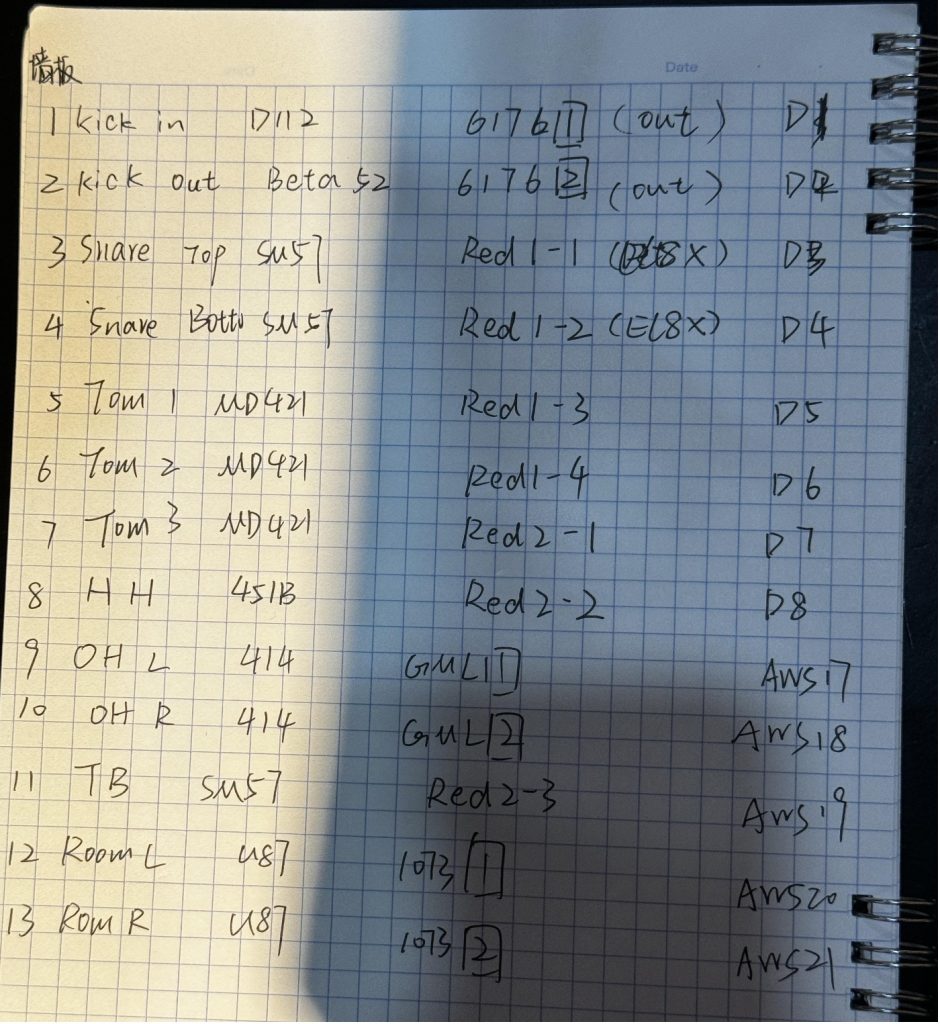 墙板
Date
1 kick in D112 6176 1 (out) D1
2 kick out Beta 52 6176 2 (out) D2
3 Snare Top SM57 Red 1-1 D3
4 Snare Botto SM57 Red 1-2 (EL8X) D4
5 Tom 1 MD421 Red 1-3 D5
6 Tom 2 MD421 Red 1-4 D6
7 Tom 3 MD421 Red 2-1 D7
8 HH 451B Red 2-2 D8
9 OH L 414 GML 1 AWS17
10 OH R 414 GML 2 AWS18
11 TB SM57 Red 2-3 AWS19
12 Room L U87 1073 1 AWS20
13 Rom R U87 1073 2 AWS21